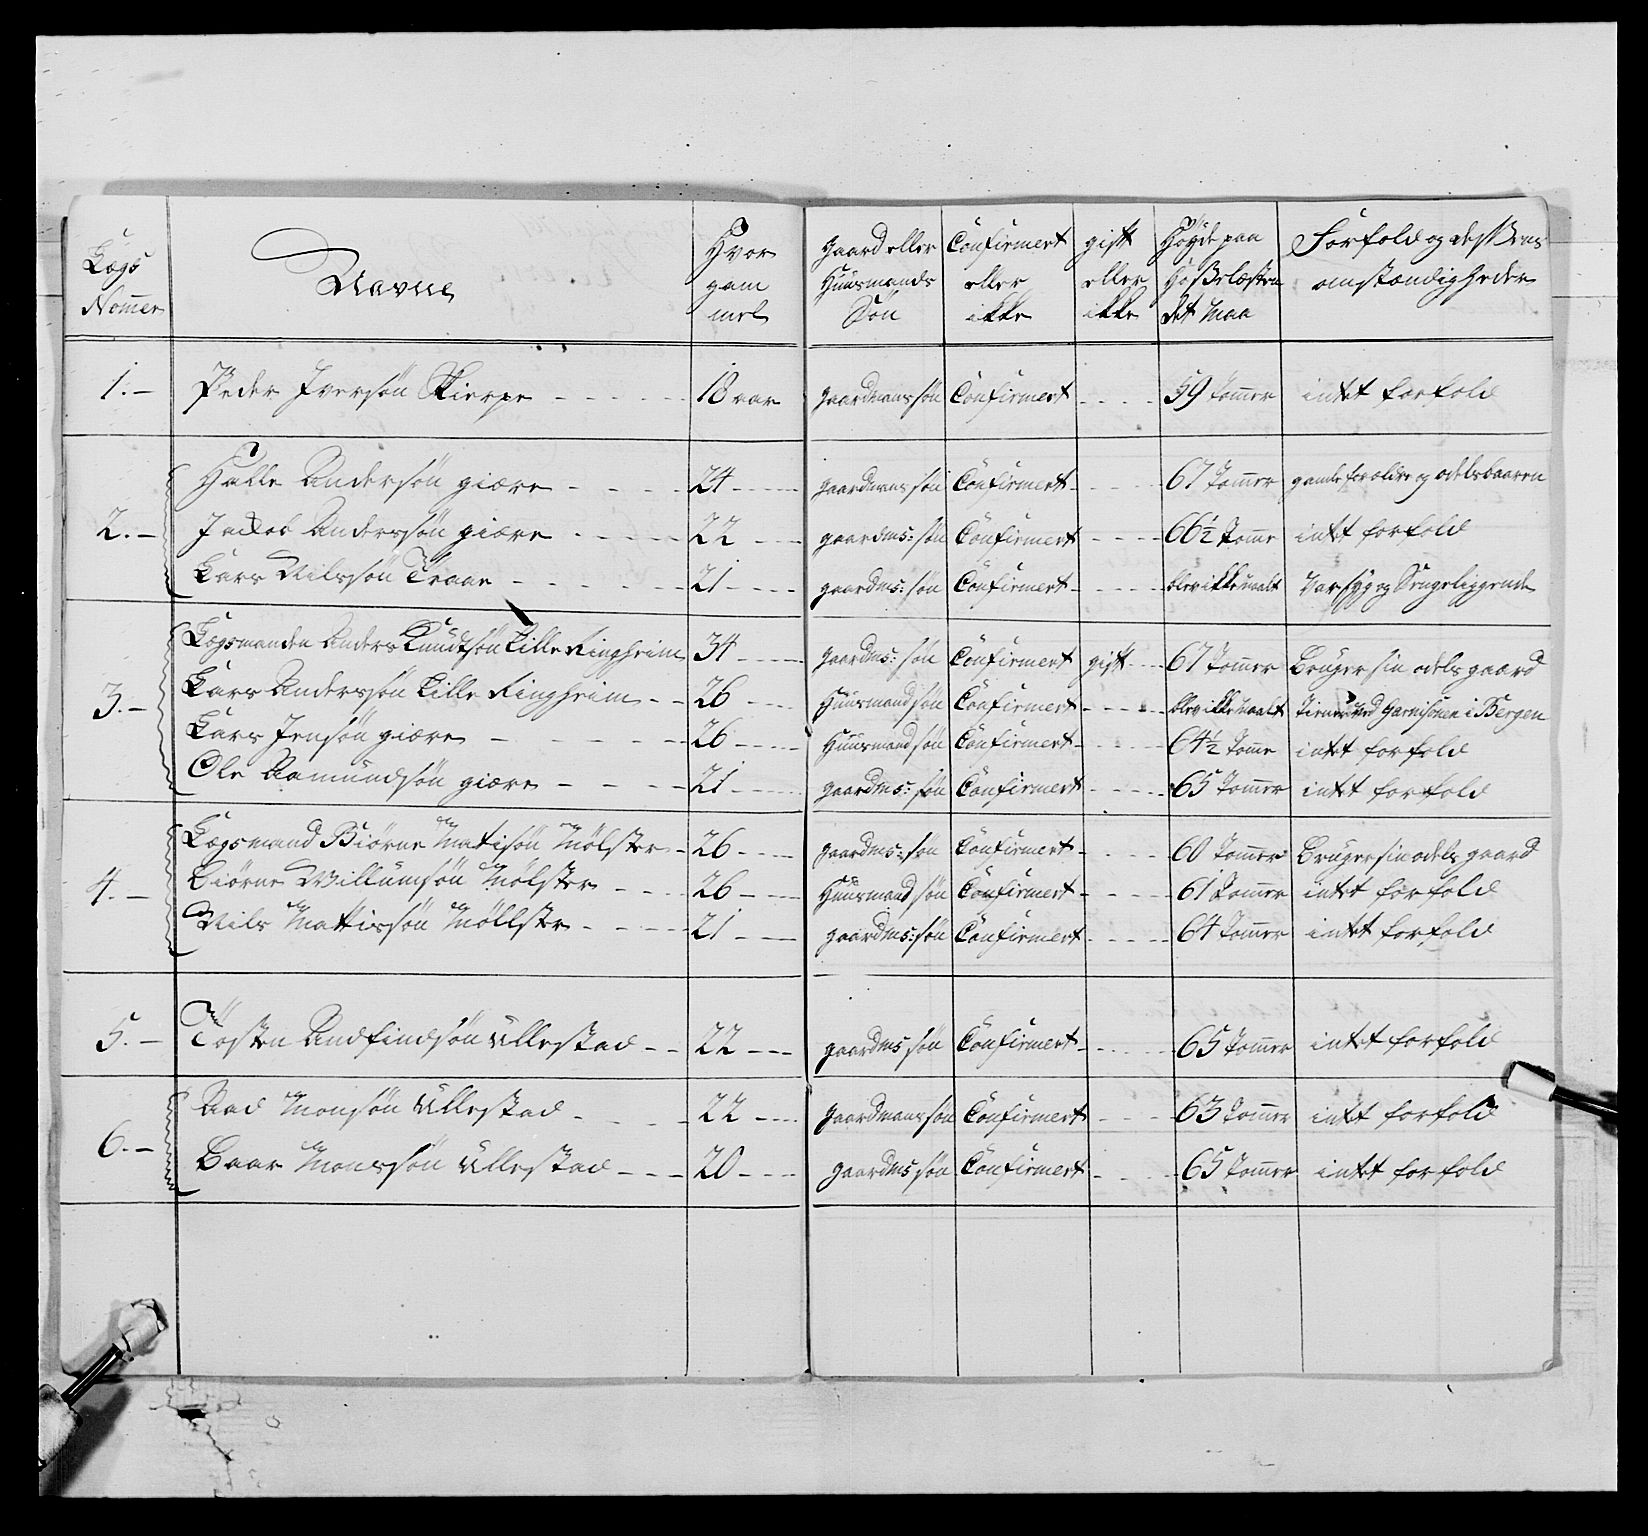 Lægs Nom̄er | Navne | Hvor gam mel | gaard eller Huusmands Søn | Confirmert eller ikke | gift eller ikke | Høyde paa Hoseslæsten det maa | Forfold og desse̅s omstændigheder
1. – | Peder Iversøn Skierpe - - - - - - | 18 aar | gaardmans søn | Confirmert | - - - - | 59 Tom̄er | intet forfold
2. – | Halle Andersøn giære - - - - - | 24 - - - - | gaardmans søn | Confirmert | - - - - | 67 Tom̄er | gamle foroldre og odelsbaaren
Jackob Anderssøn giære - - - - - | 22 - - - | gaardms: søn | Confirmert | - - - - | 66½ Tom̄e | intet forfold
Lars Nilssøn Traae - - - - - - | 21 - - - - | gaardms: søn | Confirmert | - - - - | blev ikke maalt | Var syg og Sengeliggende
3. – | Lægsmanden Anders Knudtsøn Lille Ringheim | 34 - - - - | gaardms: søn | Confirmert | gift - - | 67 Tom̄er | Bruger sin odels gaard
Lars Anderssøn Lille Ringheim - - | 26 - - - | Huusmand søn | Confirmert | - - - - | blev ikke maalt | Tiener ved Garnisonen i Bergen
Lars Jensøn giære - - - - - - | 26 - - - - | Huusmand søn | Confirmert | - - - - | 64½ Tom̄e | intet forfold
Ole Aamundsøn giære - - - - | 21 - - - - | gaardms: søn | Confirmert | - - - - | 65 Tom̄er | intet forfold
4. – | Lægsmand Biørne Matisøn Mølster - | 26 - - - | gaardms: søn | Confirmert | - - - - | 60 Tom̄er | Bruger sin odels gaard
Biørne Willumsøn Mølster - - - | 26 - - - | Huusmand søn | Confirmert | - - - - | 61 Tom̄er | intet forfold
Nils Mattissøn Møllster - - - - | 21 - - - | gaardms: søn | Confirmert | - - - - | 64 Tom̄er | intet forfold
5. – | Tosten Andfindsøn Ullestad - - | 22 - - - | gaardms søn | Confirmert | - - - - - | 65 Tom̄er | intet forfold
6. – | Aad Monsøn Ullestad - - - - | 22 - - - - | gaardmans søn | Confirmert | - - - - | 63 Tom̄er | intet forfold
Baar Monssøn Ullestad - - - | 20 - - - | gaardms søn | Confirmert | - - - - | 65 Tom̄er | intet forfold